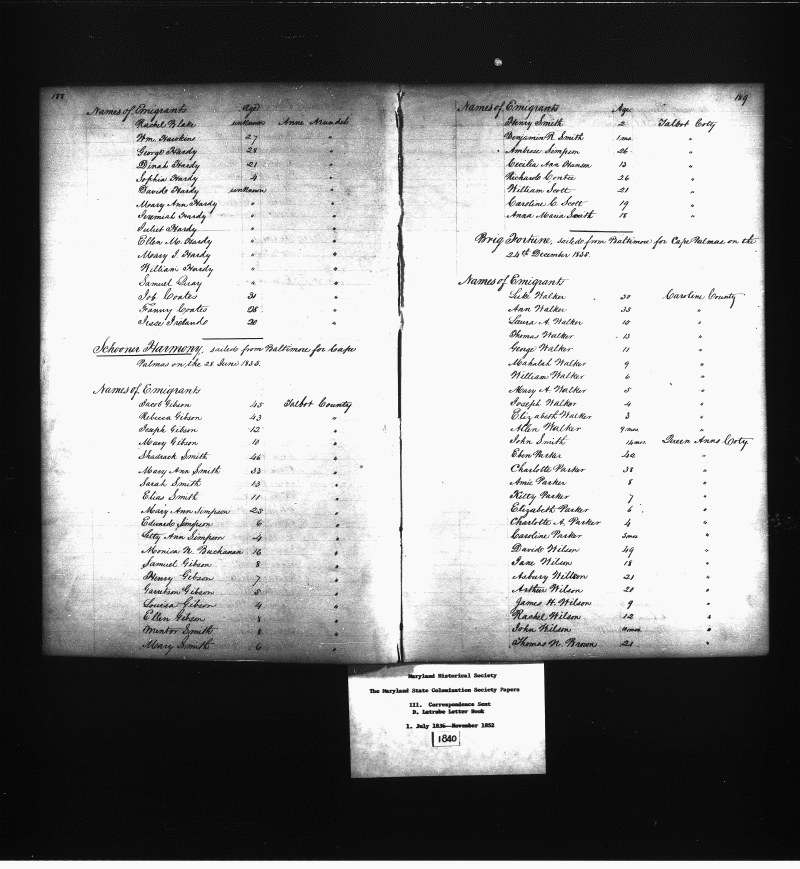 188
Names of Emigrants Age
Rachel Blake unknown Anne Arundel
Wm. Hawkins 27 "
George Hardy 28 "
Dinah Hardy 21 "
Sophia Hardy 4 "
Davide Hardy unknown "
Moary Ann Hardy " "
Jeremiah Hardy " "
Juliet Hardy " "
Ellen M. Hardy " "
Moary J. Hardy " "
William Hardy " "
Samuel Gray " "
Job Coates 31 "
Fanny Coates 28 "
Jesse Ireland 20 "
Schooner Harmony, sailed from Baltimore for Cape
Palmas on the 28 June 1835.
Names of Emigrants
Jacob Gibson 45 Talbot County
Rebecca Gibson 43 "
Joseph Gibson 12 "
Mary Gibson 10 "
Shadrack Smith 46 "
Mary Ann Smith 33 "
Sarah Smith 13 "
Elias Smith 11 "
Mary Ann Simpson 23 "
Edward Simpson 6 "
Letty Ann Simpson 4 "
Monica N. Buchanan 16 "
Samuel Gibson 8 "
Henry Gibson 7 "
Garretson Gibson 5 "
Louisa Gibson 4 "
Ellen Gibson 8 "
Mentor Smith 8 "
Mary Smith 6 "
189
Names of Emigrants Age
Henry Smith 2 Talbot Coty
Benjamin R. Smith 1 mo "
Ambrose Simpson 26 "
Cecilia Ann Hanson 13 "
Richard Contee 26 "
William Scott 21 "
Caroline C. Scott 19 "
Anna Maria Smith 18 "
Brig Fortune, sailed from Baltimore for Cape Palmas on the
24th December 1835.
Names of Emigrants
Luke Walker 30 Caroline County
Ann Walker 35 "
Laura A. Walker 10 "
Thomas Walker 13 "
George Walker 11 "
Mahalah Walker 9 "
William Walker 6 "
Mary A. Walker 5 "
Joseph Walker 4 "
Elizabeth Walker 3 "
Allen Walker 9 mos "
John Smith 14 mos Queen Anns Coty
Eben Parker 42 "
Charlotte Parker 38 "
Amie Parker 8 "
Kitty Parker 7 "
Elizabeth Parker 6 "
Charlotte A. Parker 4 "
Caroline Parker 5 mos "
Davide Wilson 49 "
Jane Wilson 18 "
Asbury Wilson 21 "
Arthur Wilson 20 "
James H. Wilson 9 "
Rachel Wilson 12 "
John Wilson mos "
Thomas N. Brown 21 "
Maryland Historical Society
The Maryland State Colonization Society Papers
III. Correspondence Sent
D. Latrobe Letter Book
1. July 1836—November 1852
1840